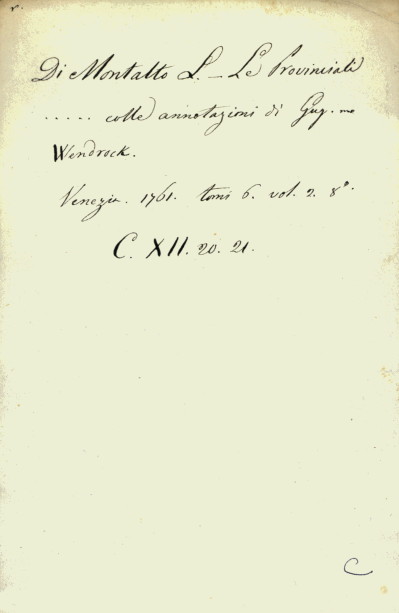 r.
Di Montalto L. – Le Provinciali
..... colle annotazioni di Gug.mo
Wendrock.
Venezia. 1761. tomi 6. vol. 2. 8°.
C. XII. 20. 21.
C